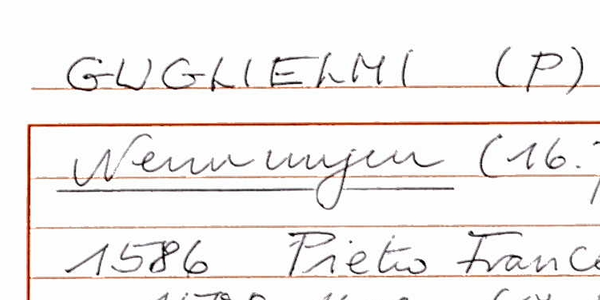 GUGLIELMI (P)
Nennungen (16.
1586 Pietro France